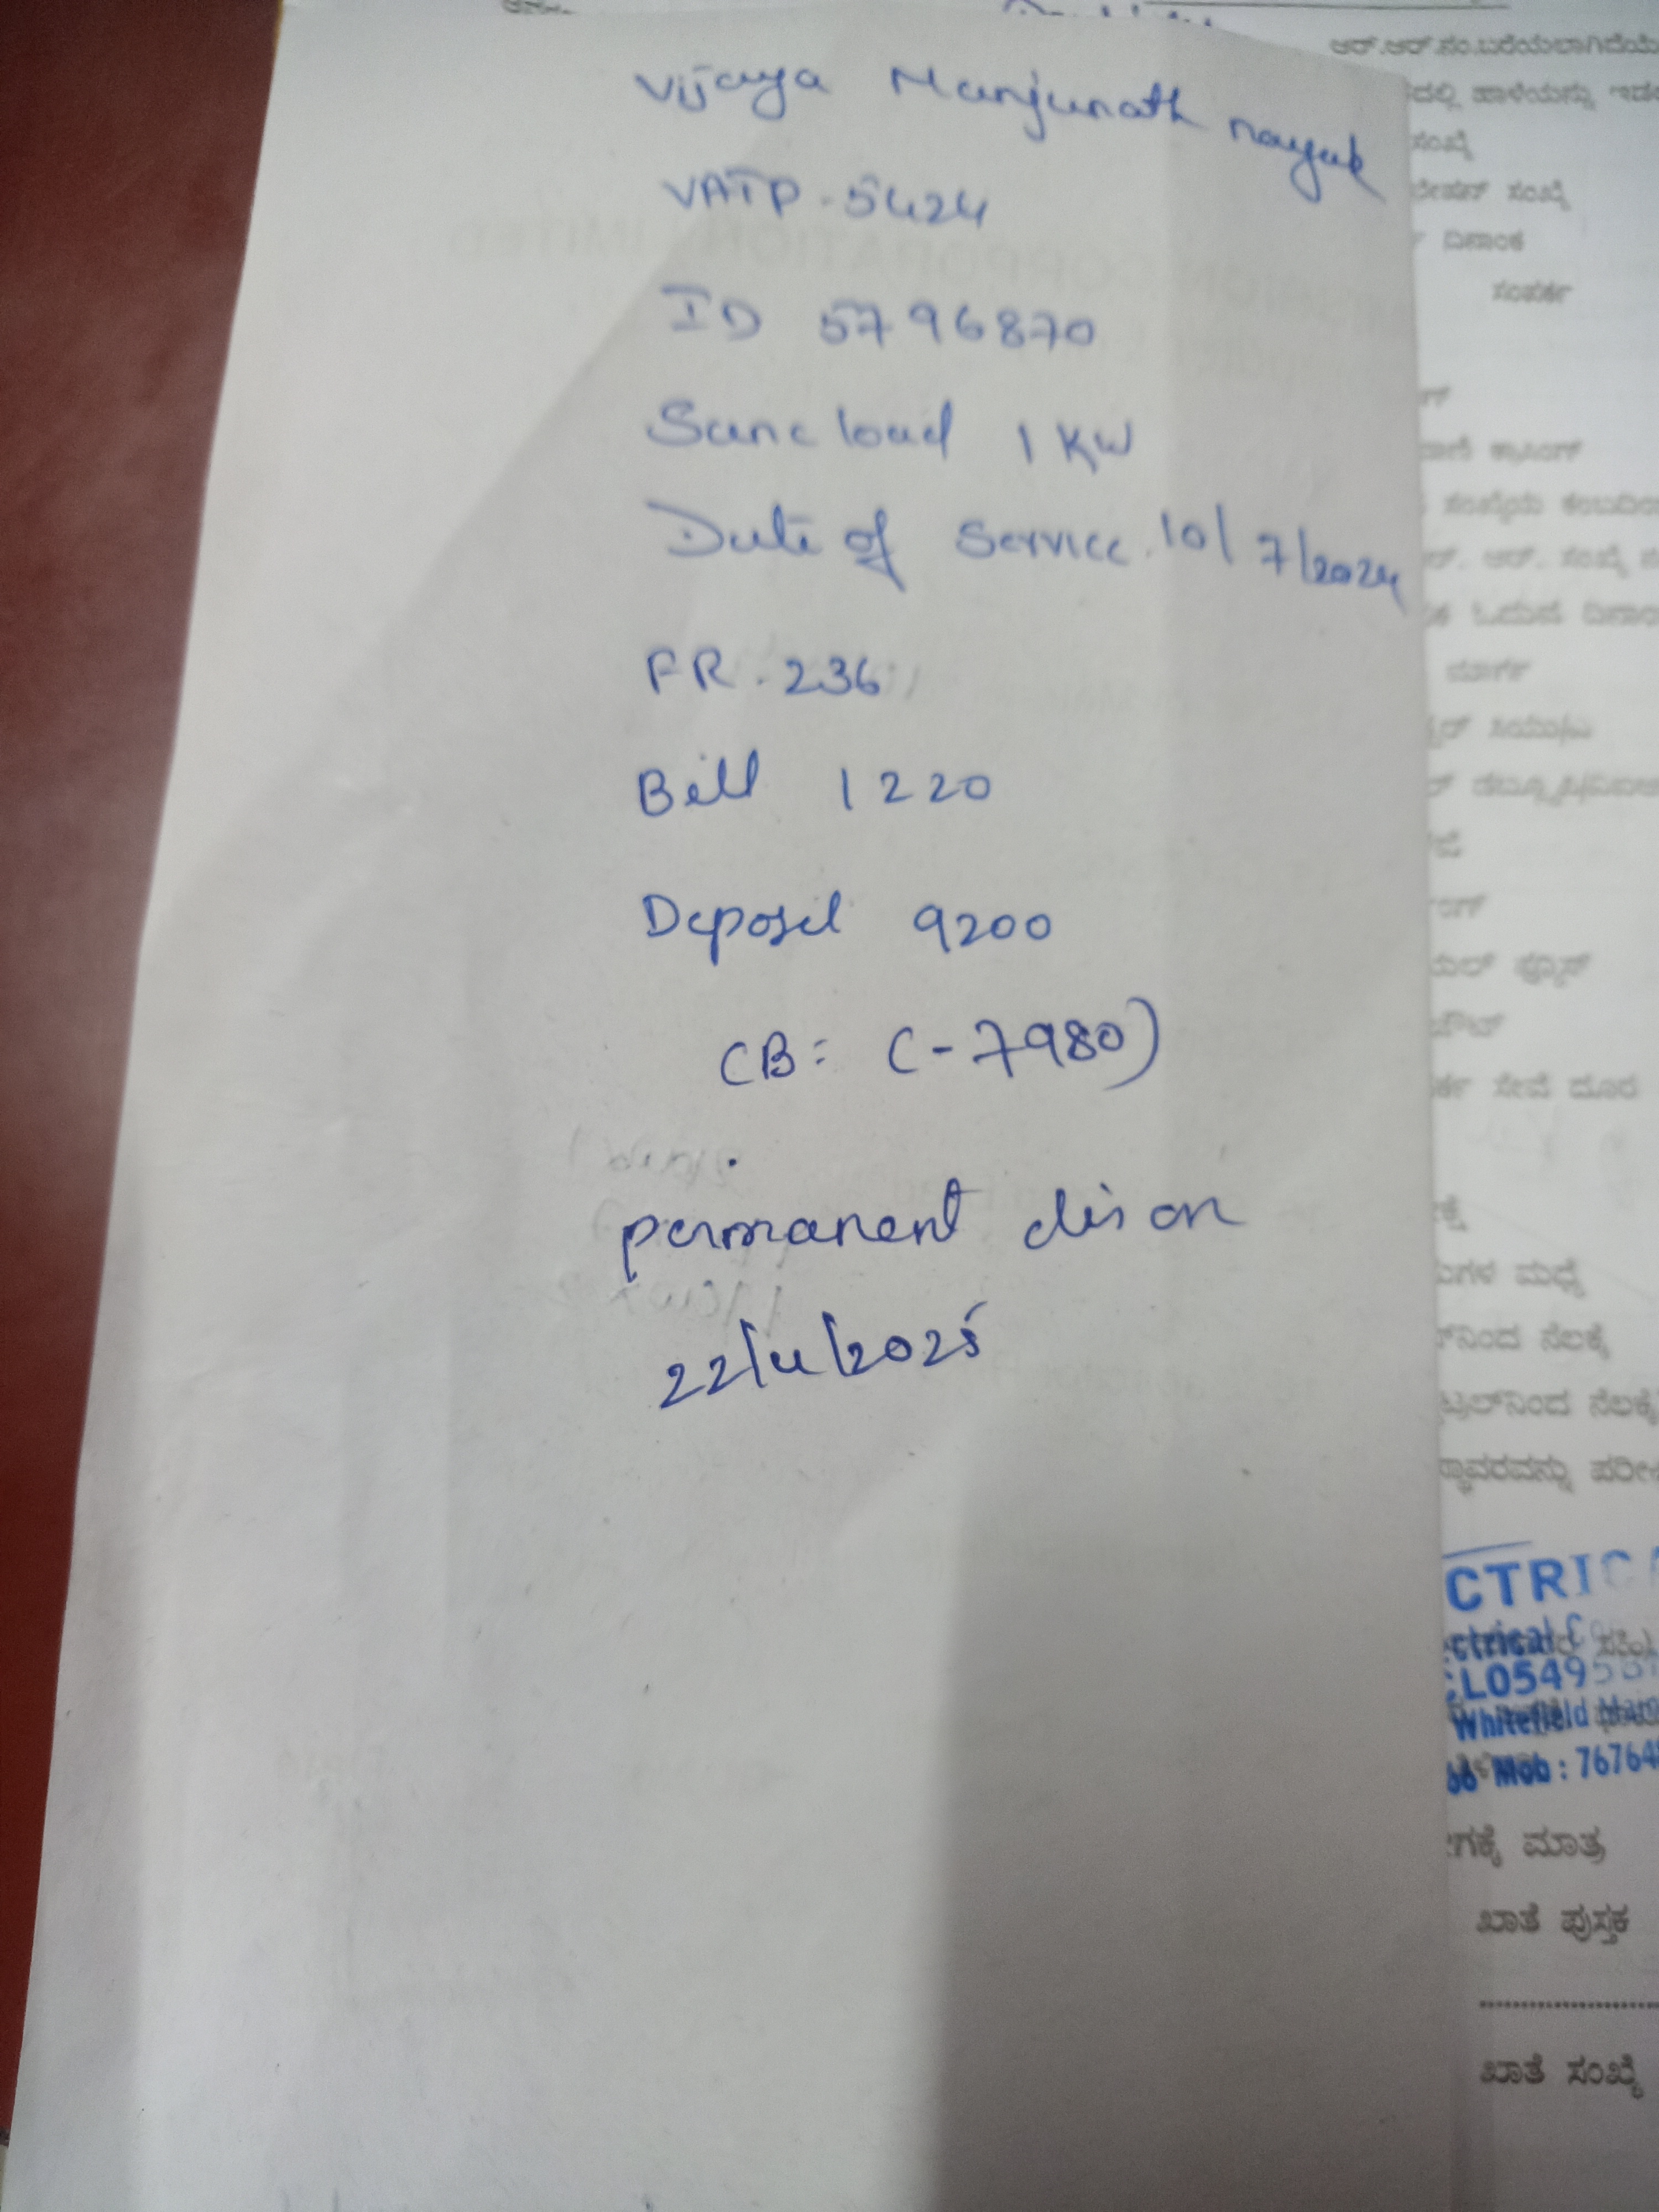 Vijaya Manjunath nayak
VATP-5424
ID 5796870
Sanc load 1 KW
Date of Service. 10/7/2024
FR. 236
Bill 1220
Deposit 9200
CB: (-7980)
permanent dis on
22/4/2025
ಆರ್.ಆರ್.ಸಂ.ಬರೆಯಲಾಗಿದೆಯೇ
ಹಾಳೆಯನ್ನು
ಸಂಖ್ಯೆ
ಸಂಖ್ಯೆ
ದಿನಾಂಕ
ಸಂಪರ್ಕ
ಕ್ರಾಸಿಂಗ್
ಸಂಖ್ಯೆಯ
ಆರ್. ಸಂಖ್ಯೆ
ಮಾರ್ಗ
ಸೇವೆ ದೂರ
ಮಧ್ಯೆ
ನೆಲಕ್ಕೆ
ನೆಲಕ್ಕೆ
CTRICA
ctrical C
CL05495
Whitefield Main
66 Mob : 76764
ಮಾತ್ರ
ಖಾತೆ ಪುಸ್ತಕ
ಖಾತೆ ಸಂಖ್ಯೆ